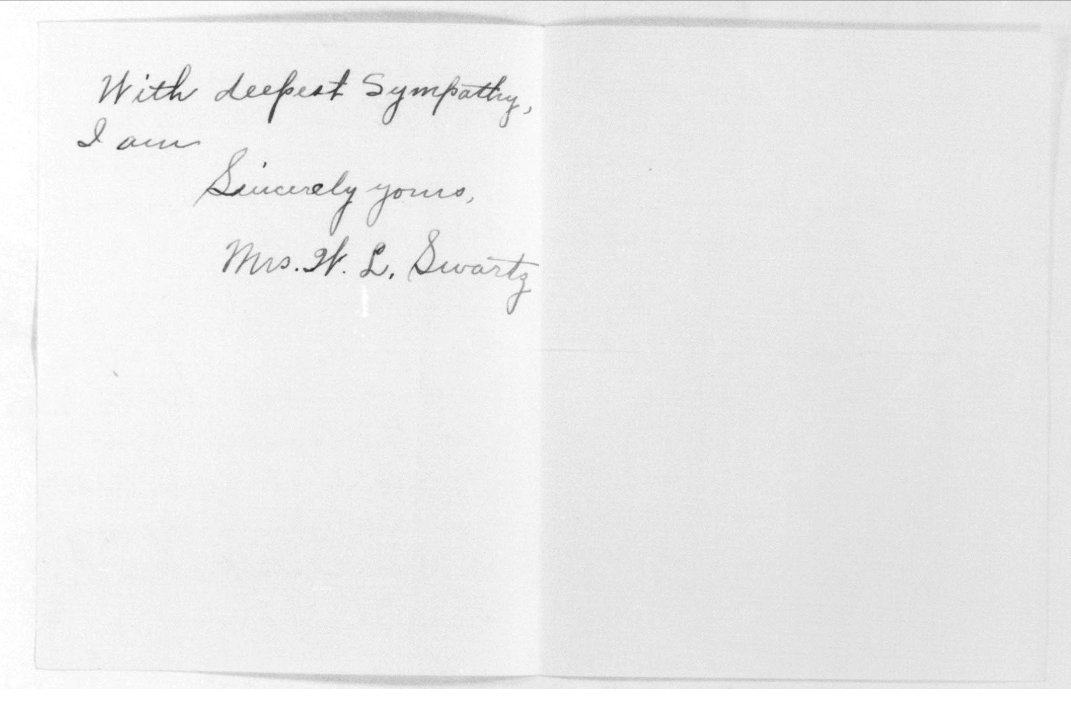 With deepest Sympathy,
I am
Sincerely yours,
Mrs. W. L. Swartz